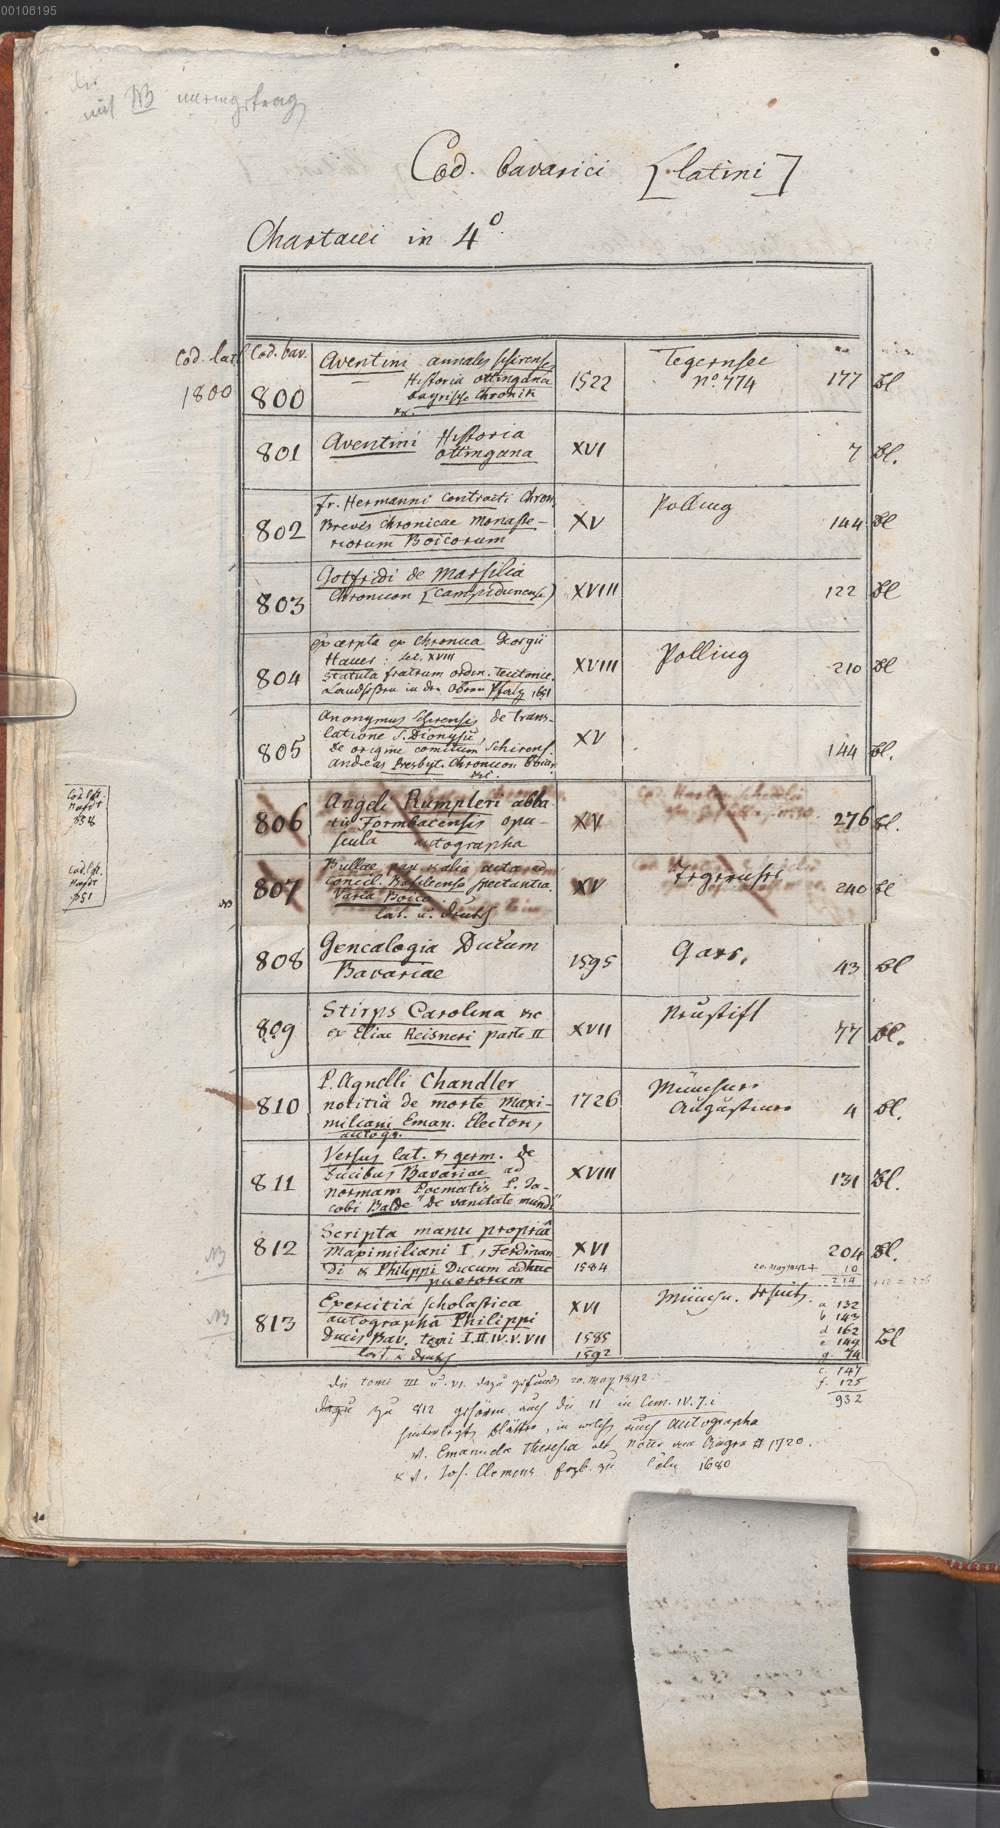 00108195
mit NB
Cod. bavarici [latini]
Chartacei in 4º.
Cod. lat. Cod. bav.
1800
800 Aventini annales schirenses
Historia ottingana
bayrische Chronik
1522 Tegernsee
Nº 774 177 Bl
801 Aventini Historia
ottingana XVI 7 Bl.
802 fr. Hermanni Contracti Chron.
Breves Chronicae Monaste-
riorum Boicorum XV Polling 144 Bl
803 Gotfridi de Marsilia
Chronicon (Campidunense) XVIII 122 Bl
804 Excerpta ex Chronica Georgii
Hauer: sec. XVIII
Statuta fratrum ordin. Teutonic.
Landsassen in der Obern Pfalz 1651
XVIII Polling 210 Bl
805 Anonymus Schirensis de trans-
latione S. Dionysii,
de origine comitum Schirens.
Andreas Presbyt. Chronicon Bavar.
XV 144 Bl.
806 Angeli Rumpleri abba
tis Formbacensis opu-
scula autographa
XV 276 Bl.
807 Bullae et alia acta ad
Concil. Basileense spectantia.
Varia Boica
lat. u. deutsch
XV Tegernsee 240 Bl
808 Genealogia Ducum
Bavariae 1595 Gars. 43 Bl
809 Stirps Carolina etc
ex Eliae Reisneri parte II XVII Neustift 77 Bl.
810 P. Agnelli Chandler
notitia de morte Maxi-
miliani Eman. Electoris
autogr.
1726 München
Augustiner 4 Bl.
811 Versus lat. & germ. de
Ducibus Bavariae ad
normam Poematis P. Ja-
cobi Balde "de vanitate mundi"
XVIII 131 Bl.
NB 812 Scripta manu propriâ
Maximiliani I, Ferdinan
di & Philippi Ducum adhuc
puerorum
XVI
1584
204 Bl.
20. May 1842 + 10
214
NB 813 Exercitia scholastica
autographa Philippi
Ducis Bav. tomi I. II. IV. V. VII
lat. & deutsch
XVI
1585
1592
Münch. Jesuit.
a 132
b 143
d 162
e 149
g. 74
Bl
c. 147
f. 125
932
die tomi III u. VI. dazu gefunden 20. May 1842.
zu 812 gehören auch die 11 in Cim. IV. 7. i
hinterlegten Blätter, in welchen auch autographa
v. Emanuela Theresia als Nonne 1720.
& v. Jos. Clemens Erzb. zu Cöln 1680